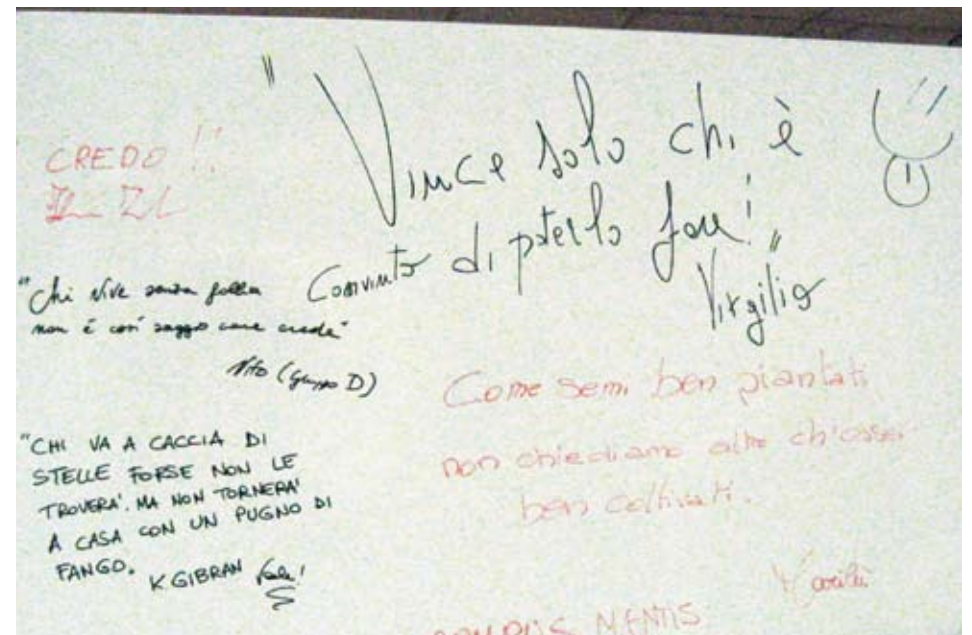 "Vince solo chi è
convinto di poterlo fare!"
Virgilio
CREDO!!
"Chi vive senza follia
non è così saggio come crede"
Vito (Gruppo D)
"CHI VA A CACCIA DI
STELLE FORSE NON LE
TROVERA'. MA NON TORNERA'
A CASA CON UN PUGNO DI
FANGO.
K GIBRAN
Come semi ben piantati
non chiediamo altro ch'esser
ben coltivati.
MENTIS